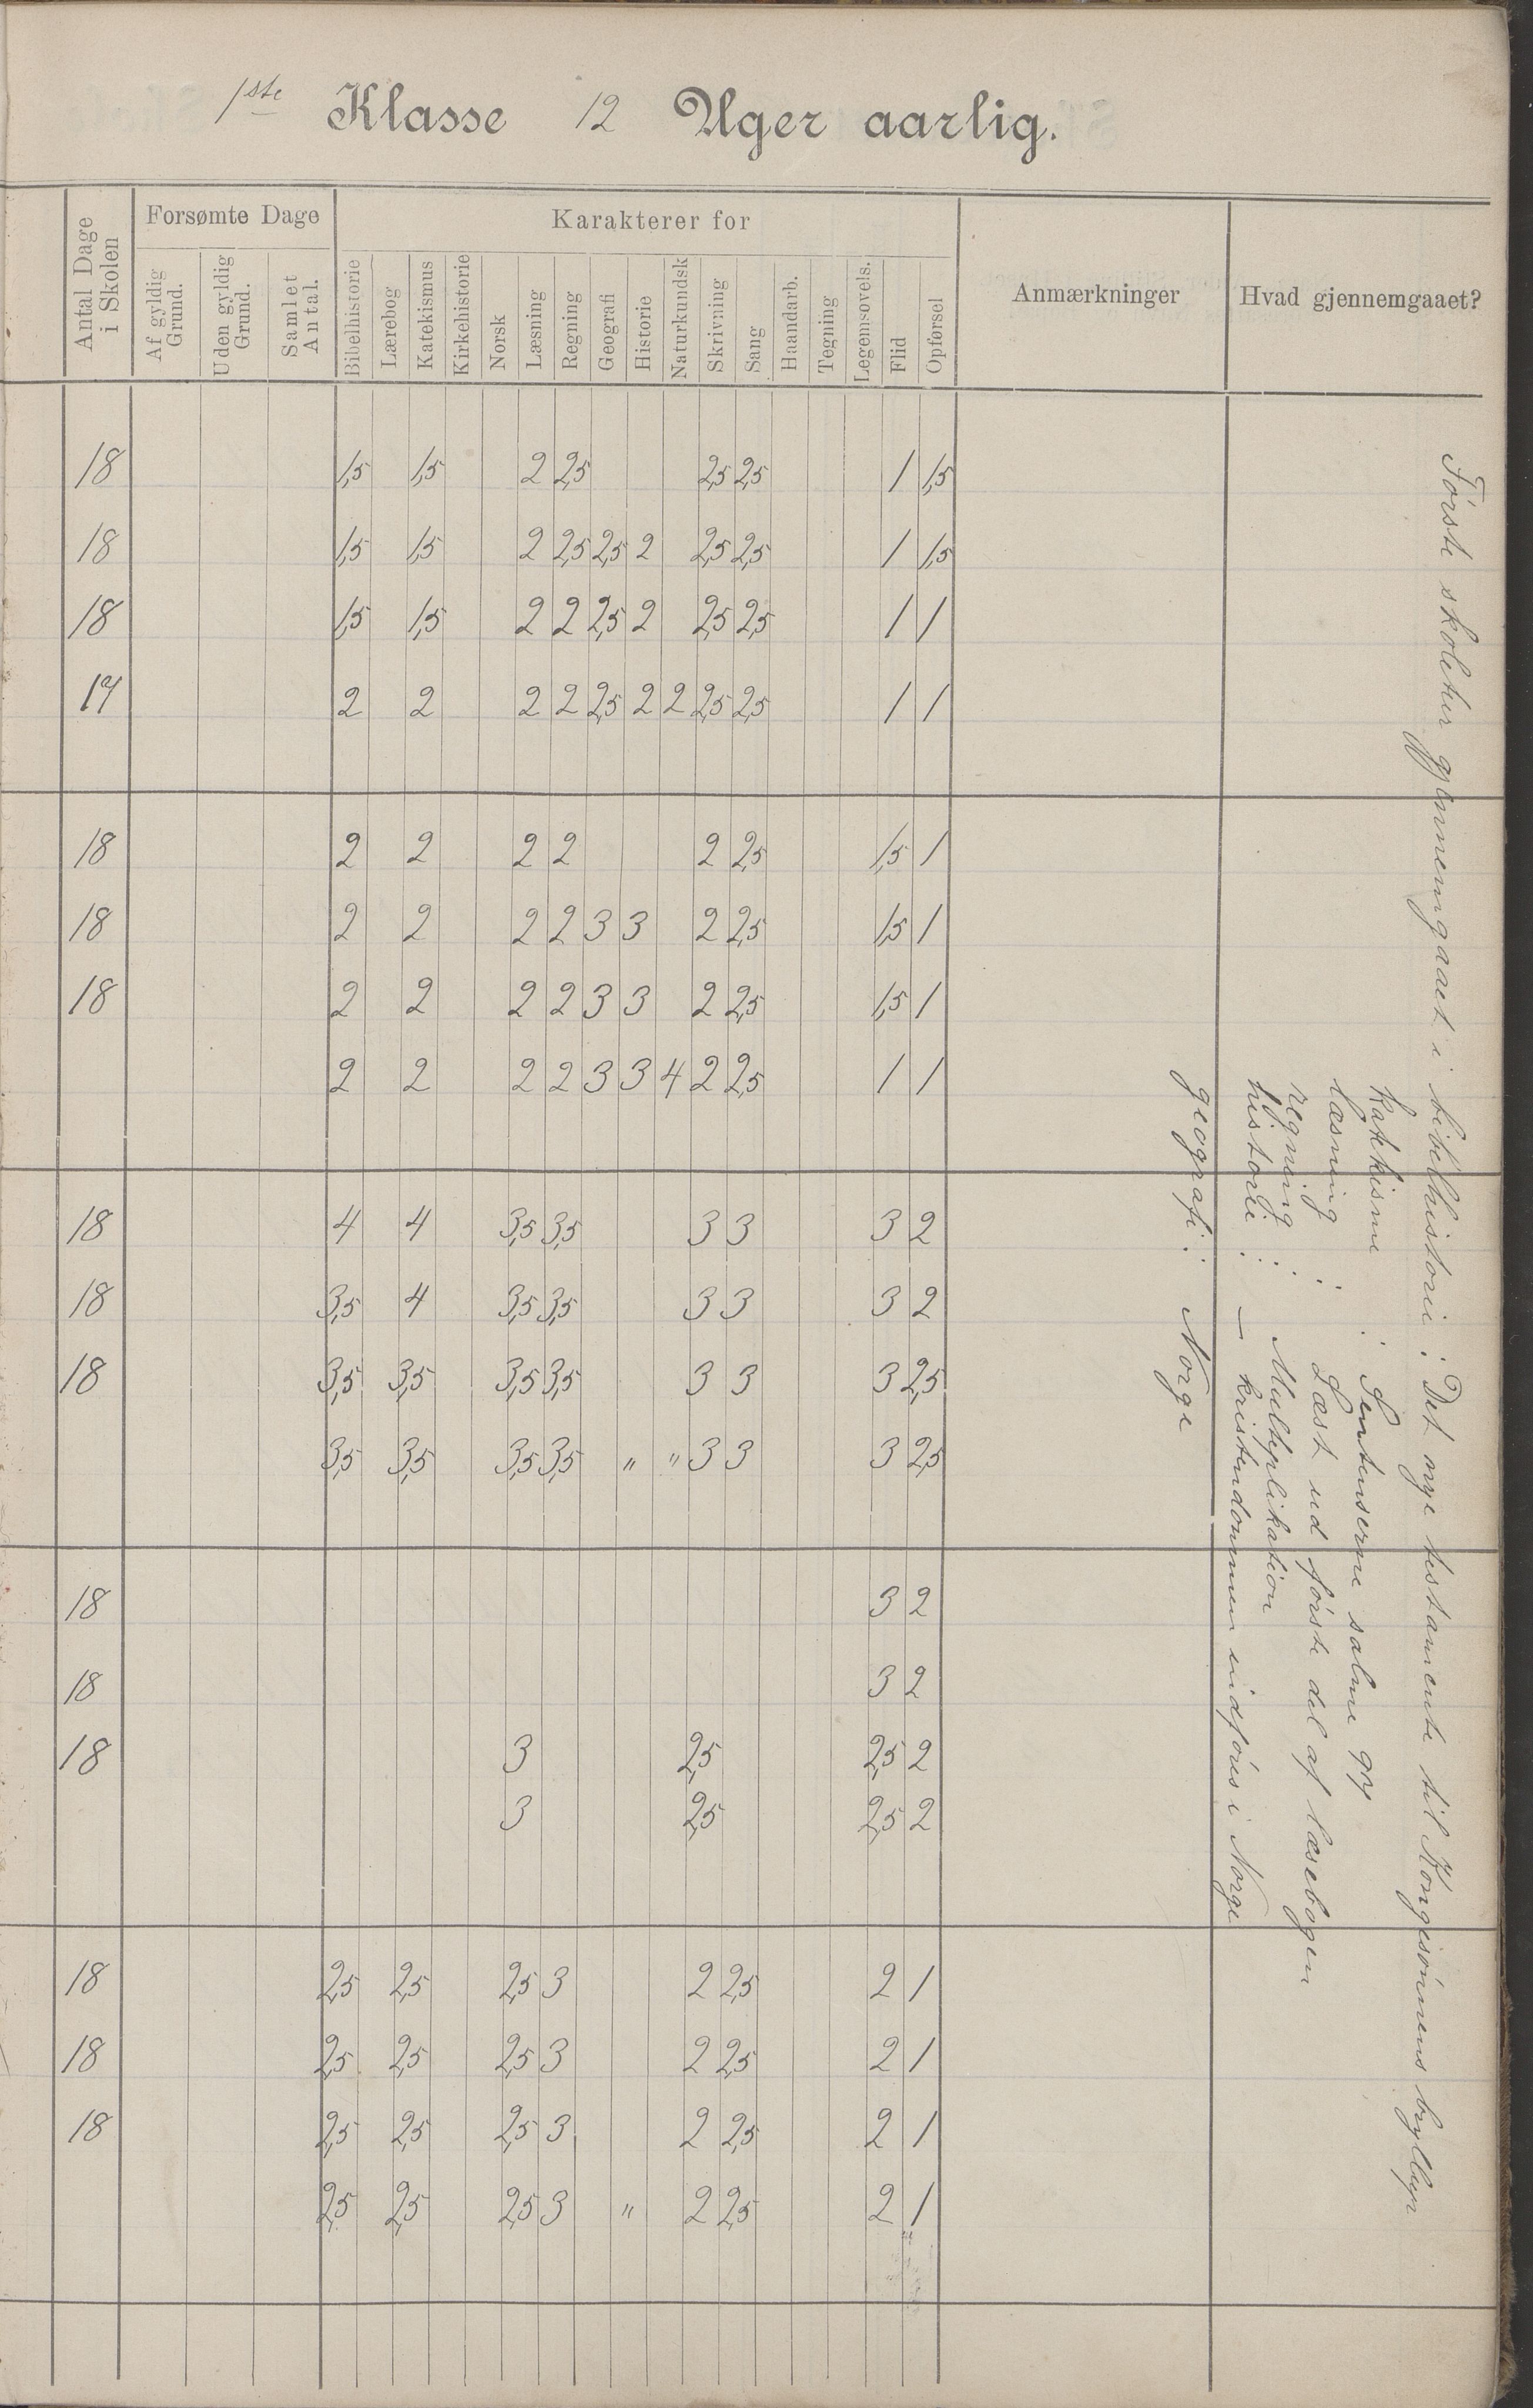 1ste Klasse 12 Uger aarlig.
Antal Dage i Skolen
Forsømte Dage
Af gyldig Grund.
Uden gyldig Grund.
Samlet Antal.
Karakterer for
Bibelhistorie
Lærebog
Katekismus
Kirkehistorie
Norsk
Læsning
Regning
Geografi
Historie
Naturkundsk
Skrivning
Sang
Haandarb.
Tegning
Legemsøvels.
Flid
Opførsel
Anmærkninger
Hvad gjennemgaaet?
18 1,5 1,5 2 2,5 2,5 2,5 1 1,5
18 1,5 1,5 2 2,5 2,5 2 2,5 2,5 1 1,5
18 1,5 1,5 2 2 2,5 2 2,5 2,5 1 1
17 2 2 2 2 2,5 2 2 2,5 2,5 1 1
18 2 2 2 2 2 2,5 1,5 1
18 2 2 2 2 3 3 2 2,5 1,5 1
18 2 2 2 2 3 3 2 2,5 1,5 1
2 2 2 2 3 3 4 2 2,5 1 1
18 4 4 3,5 3,5 3 3 3 2
18 3,5 4 3,5 3,5 3 3 3 2
18 3,5 3,5 3,5 3,5 3 3 3 2,5
3,5 3,5 3,5 3,5 " " 3 3 3 2,5
18 3 2
18 3 2
18 3 2,5 2,5 2
3 2,5 2,5 2
18 2,5 2,5 2,5 3 2 2,5 2 1
18 2,5 2,5 2,5 3 2 2,5 2 1
18 2,5 2,5 2,5 3 2 2,5 2 1
2,5 2,5 2,5 3 " 2 2,5 2 1
Første skoletur gjennemgaaet i bibelhistorie: Det nye testamente til Kongesønnens bryllup
katekisme : Sentenserne salme og
læsning : Læst ud første del af læsebogen
regning : Multiplikation
historie : – kristendommen indføres i Norge
geografi : Norge